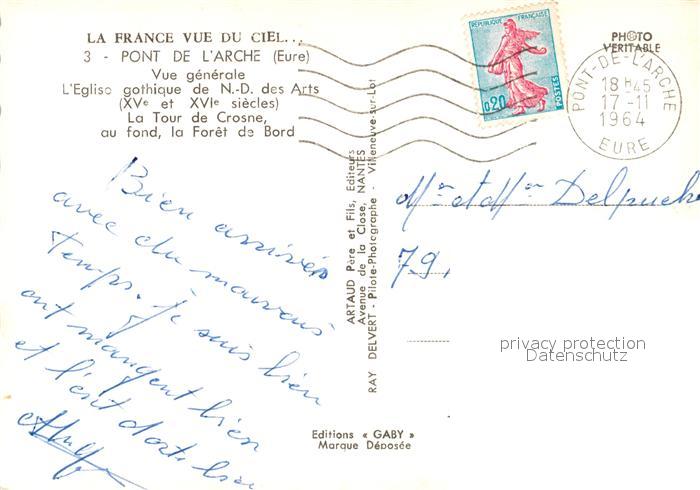 LA FRANCE VUE DU CIEL...
3 - PONT DE L'ARCHE (Eure)
Vue générale
L'Eglise gothique de N.-D. des Arts
(XVe et XVIe siècles)
La Tour de Crosne,
au fond, la Forêt de Bord
REPUBLIQUE FRANÇAISE
0,20
POSTES
PHOTO
VERITABLE
PONT-DE-L'ARCHE
18 H45
17 -11
1964
EURE
Bien arrivés
avec du mauvais
temps. Je suis bien
ont mangent bien
et
ARTAUD Père et Fils, Editeurs
Avenue de la Close, NANTES
RAY DELVERT - Pilote-Photographe - Villeneuve-sur-Lot
Mr et Mme Delpuche
79.
privacy protection
Datenschutz
Editions « GABY »
Marque Déposée